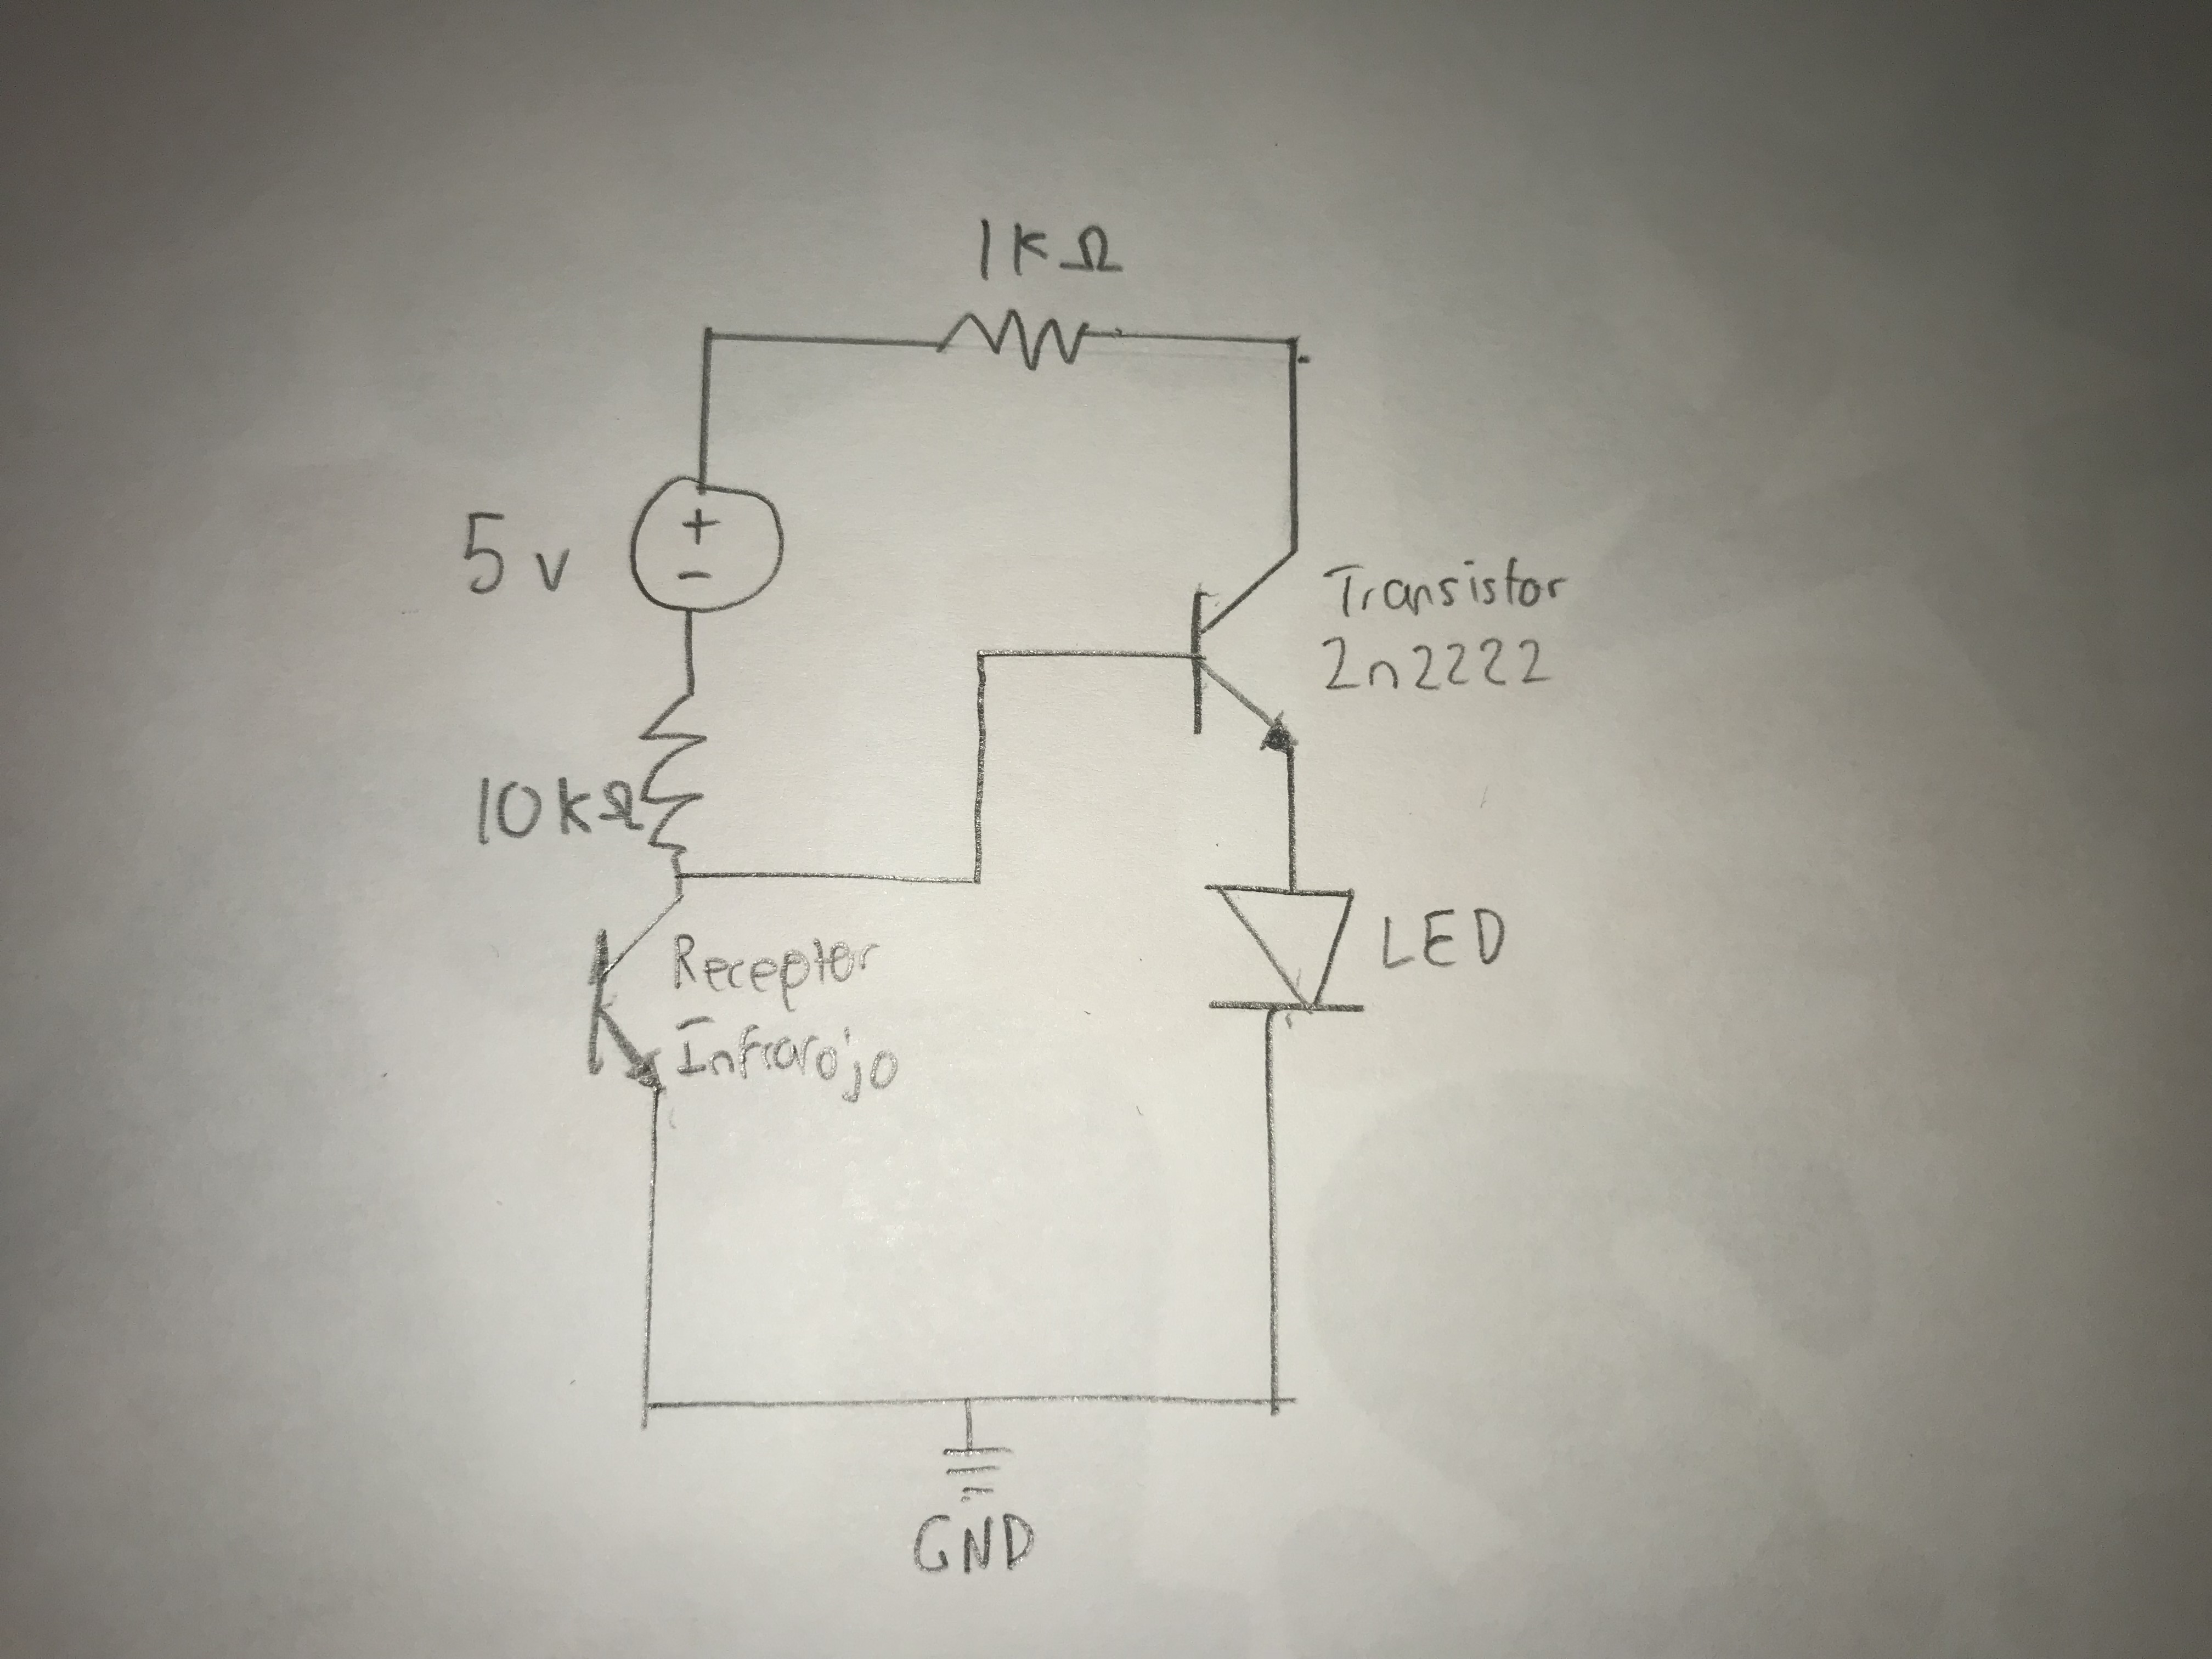 1KΩ
+
5v
-
Transistor
2n2222
10KΩ
LED
Receptor
Infrarojo
GND